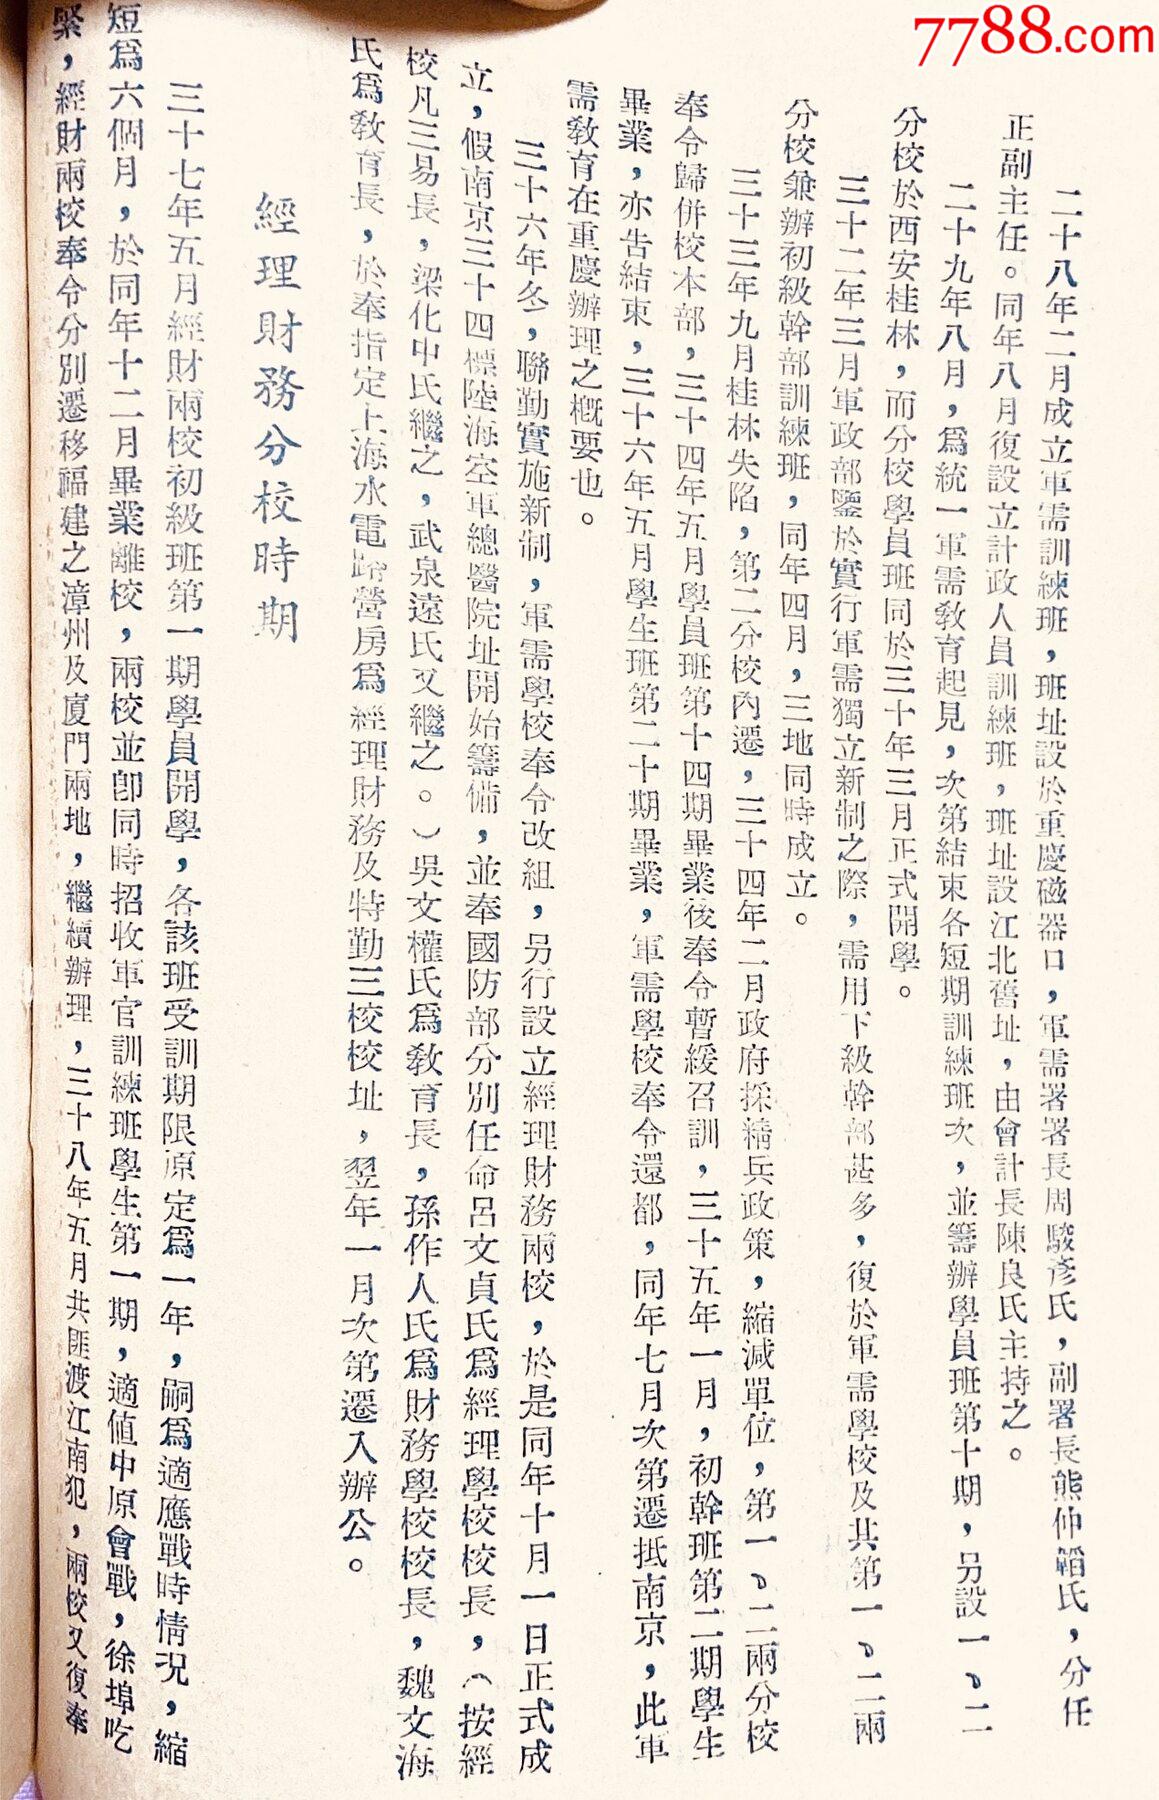 7788.com
二十八年二月成立軍需訓練班，班址設於重慶磁器口，軍需署署長周駿彥氏，副署長熊仲韜氏，分任
正副主任。同年八月復設立計政人員訓練班，班址設江北舊址，由會計長陳良氏主持之。
二十九年八月，爲統一軍需教育起見，次第結束各短期訓練班次，並籌辦學員班第十期，另設一、二
分校於西安桂林，而分校學員班同於三十年三月正式開學。
三十二年三月軍政部鑒於實行軍需獨立新制之際，需用下級幹部甚多，復於軍需學校及其第一、二兩
分校兼辦初級幹部訓練班，同年四月，三地同時成立。
三十三年九月桂林失陷，第二分校內遷，三十四年二月政府採精兵政策，縮減單位，第一、二兩分校
奉令歸併校本部，三十四年五月學員班第十四期畢業後奉令暫緩召訓，三十五年一月，初幹班第二期學生
畢業，亦告結束，三十六年五月學生班第二十期畢業，軍需學校奉令還都，同年七月次第遷抵南京，此軍
需教育在重慶辦理之槪要也。
三十六年冬，聯勤實施新制，軍需學校奉令改組，另行設立經理財務兩校，於是同年十月一日正式成
立，假南京三十四標陸海空軍總醫院址開始籌備，並奉國防部分別任命呂文貞氏爲經理學校校長，（按經
校凡三易長，梁化中氏繼之，武泉遠氏又繼之。）吳文權氏爲教育長，孫作人氏爲財務學校校長，魏文海
氏爲教育長，於奉指定上海水電路營房爲經理財務及特勤三校校址，翌年一月次第遷入辦公。
經理財務分校時期
三十七年五月經財兩校初級班第一期學員開學，各該班受訓期限原定爲一年，嗣爲適應戰時情況，縮
短爲六個月，於同年十二月畢業離校，兩校並卽同時招收軍官訓練班學生第一期，適值中原會戰，徐埠吃
緊，經財兩校奉令分別遷移福建之漳州及廈門兩地，繼續辦理，三十八年五月共匪渡江南犯，兩校又復奉